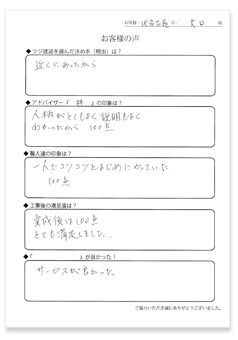 お客様の声
◆ツジ建設を選んだ決め手（理由）は？
近くにあったから
◆アドバイザー『 』の印象は？
人柄がとてもよく説明もよく
わかったから 100点
◆職人達の印象は？
一人でコツコツとまじめにやっていた
100点
◆工事後の満足度は？
完成後は100点
とても満足しました。
◆『 』が良かった！
サービスが良かった
ご協力いただき誠にありがとうございました。